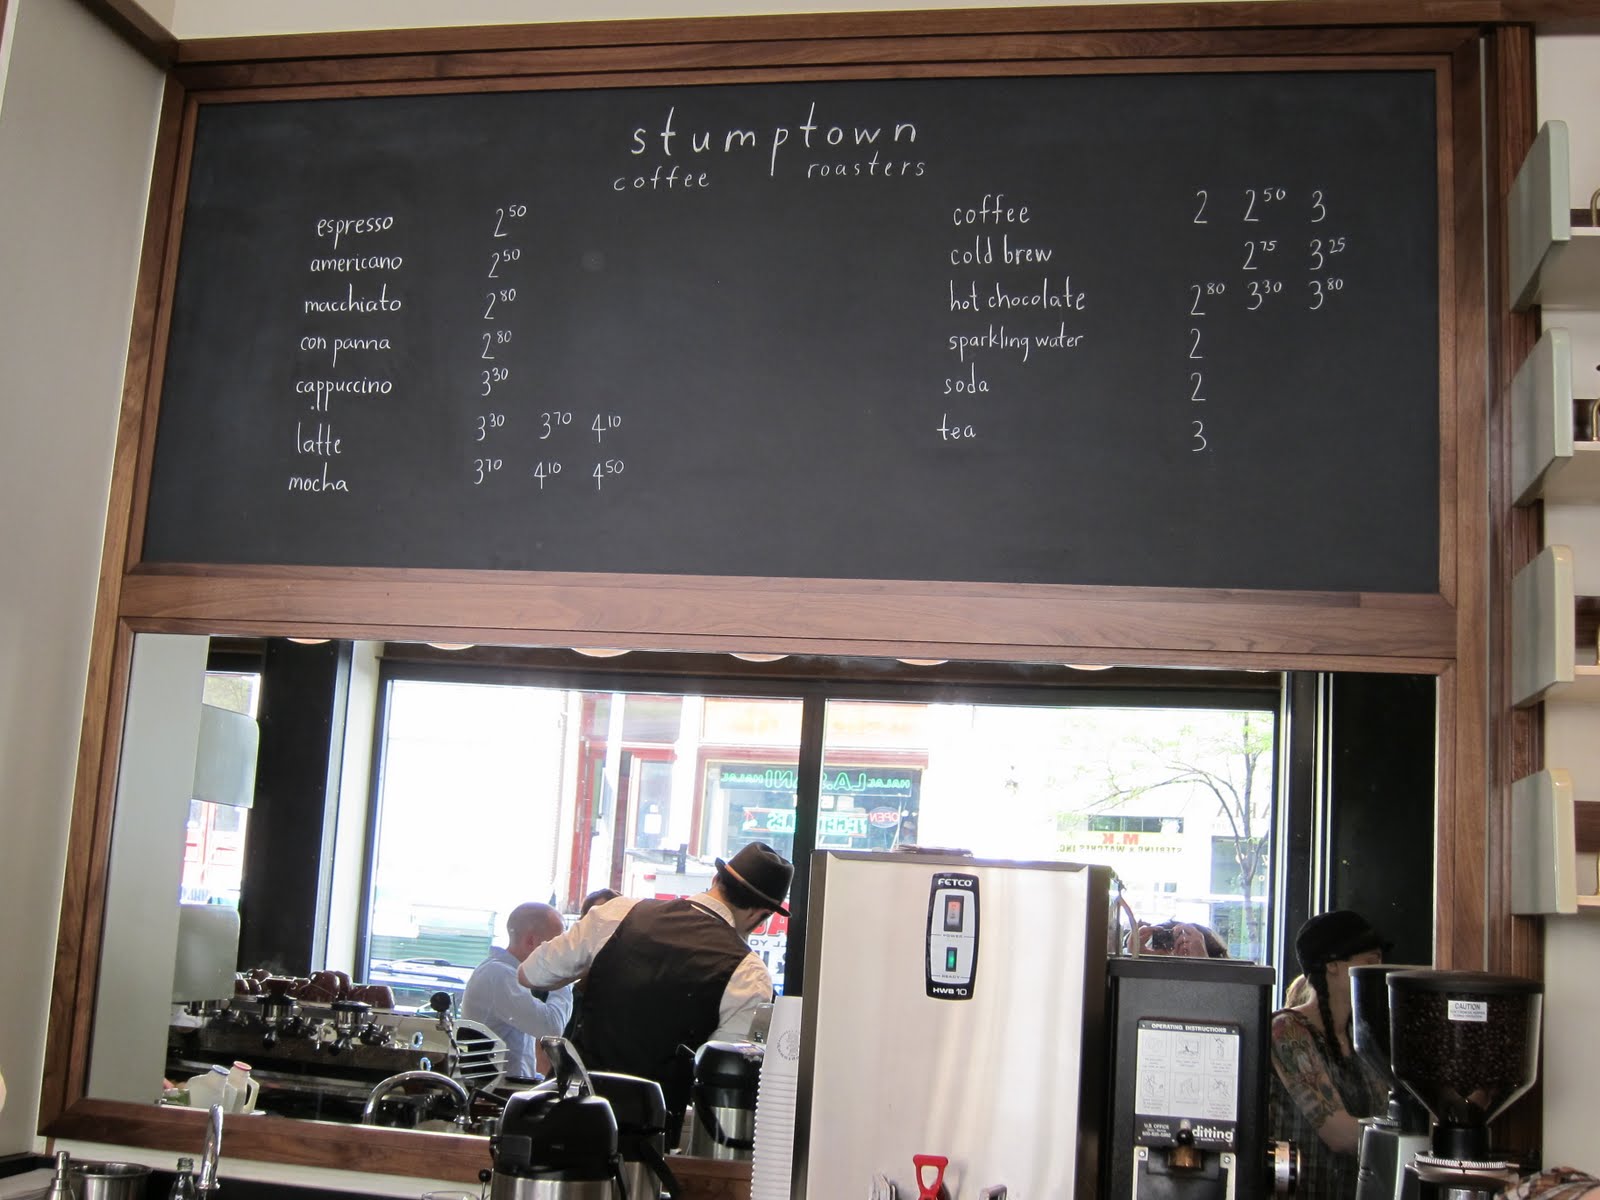 stumptown
coffee roasters
espresso 2 50
americano 2 50
macchiato 2 80
con panna 2 80
cappuccino 3 30
latte 3 30 3 70 4 10
mocha 3 70 4 10 4 50
coffee 2 2 50 3
cold brew 2 75 3 25
hot chocolate 2 80 3 30 3 80
sparkling water 2
soda 2
tea 3
HALAL LA.SANI HALAL
OPEN
M.K
STERLING & WATCHES INC.
FETCO
POWER
READY
HWB 10
OPERATING INSTRUCTIONS
U.S. OFFICE
ditting
CAUTION